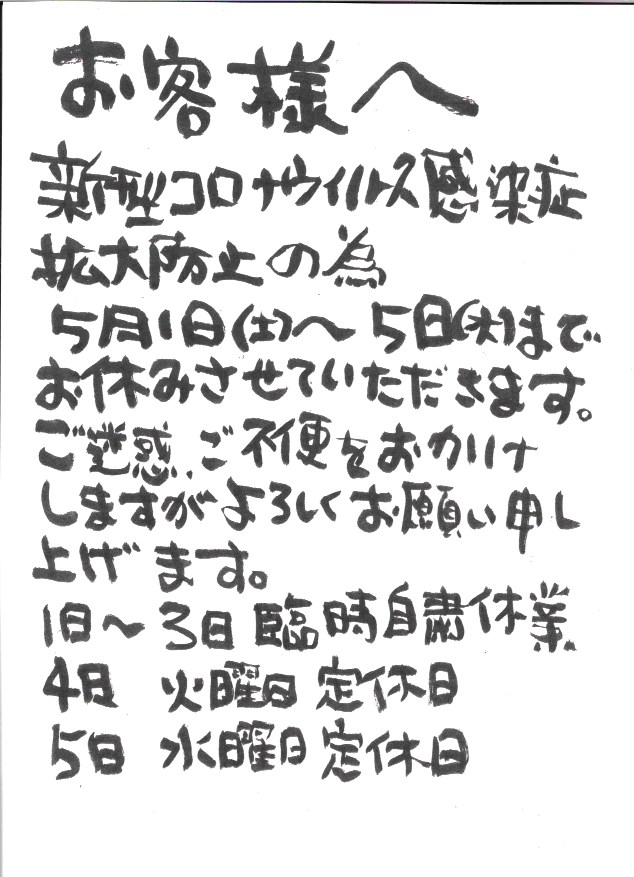 お客様へ
新型コロナウィルス感染症
拡大防止の為
5月1日(土)〜5日(水)まで
お休みさせていただきます。
ご迷惑、ご不便をおかけ
しますがよろしくお願い申し
上げます。
1日〜3日 臨時自粛休業
4日 火曜日 定休日
5日 水曜日 定休日